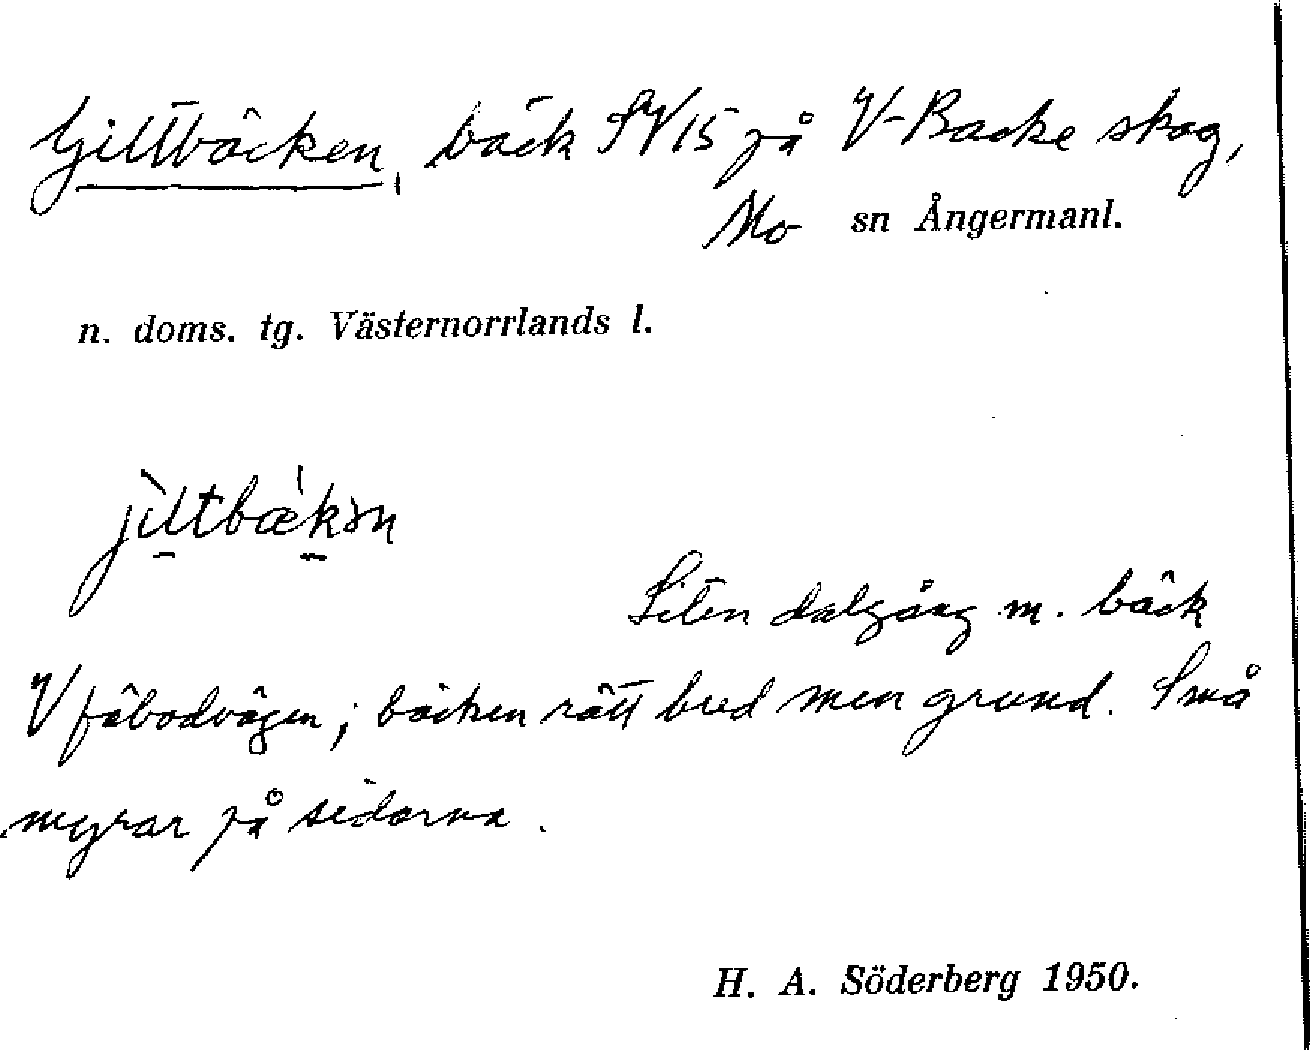 Gilltbäcken, bäck SV15 på V-Backe skog,
Mo sn Ångermanl.
n. doms. tg. Västernorrlands l.
jìltbæ̀kən
Liten dalgång m. bäck
V fäbodvägen; bäcken rätt bred men grund. Små
myrar på sidorna.
H. A. Söderberg 1950.